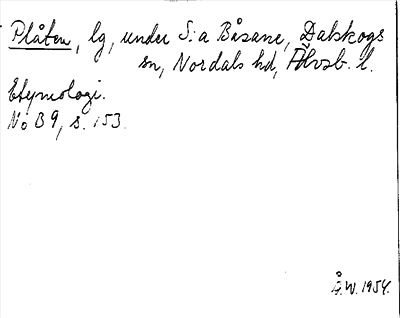 Plåten, lg, under S:a Båsane, Dalskogs
sn, Nordals hd, Älvsb. l.
Etymologi.
No B 9, s. 153.
Å.W. 1954.